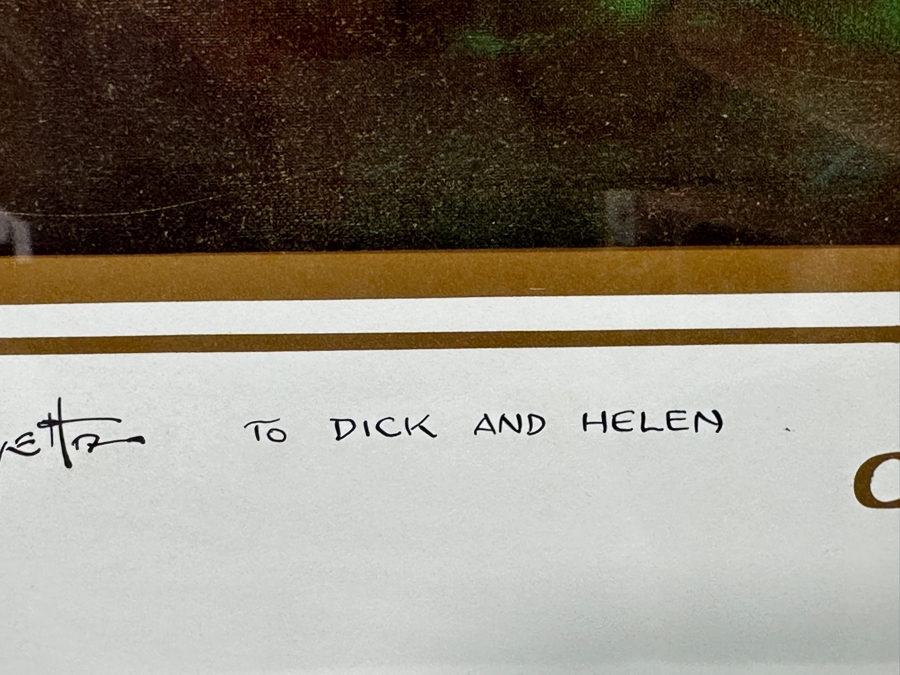 TO DICK AND HELEN